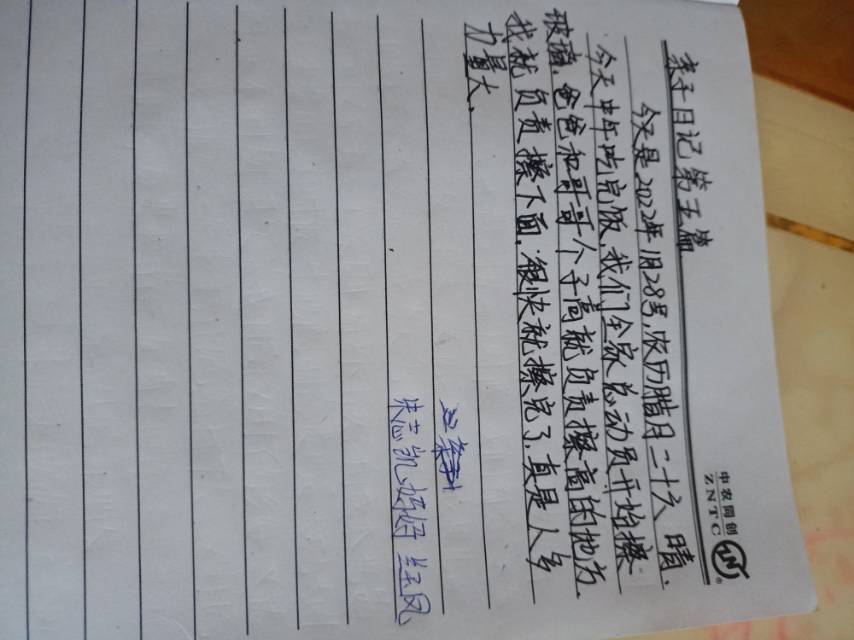 中农同创
ZNTC
亲子日记第五篇
今天是2022年1月28号,农历腊月二十六 晴.
今天中午吃完饭,我们全家总动员开始擦
玻璃,爸爸和哥哥个子高就负责擦高的地方.
我就负责擦下面.很快就擦完了,真是人多
力量大、
朱志凯妈妈 兰玉凤